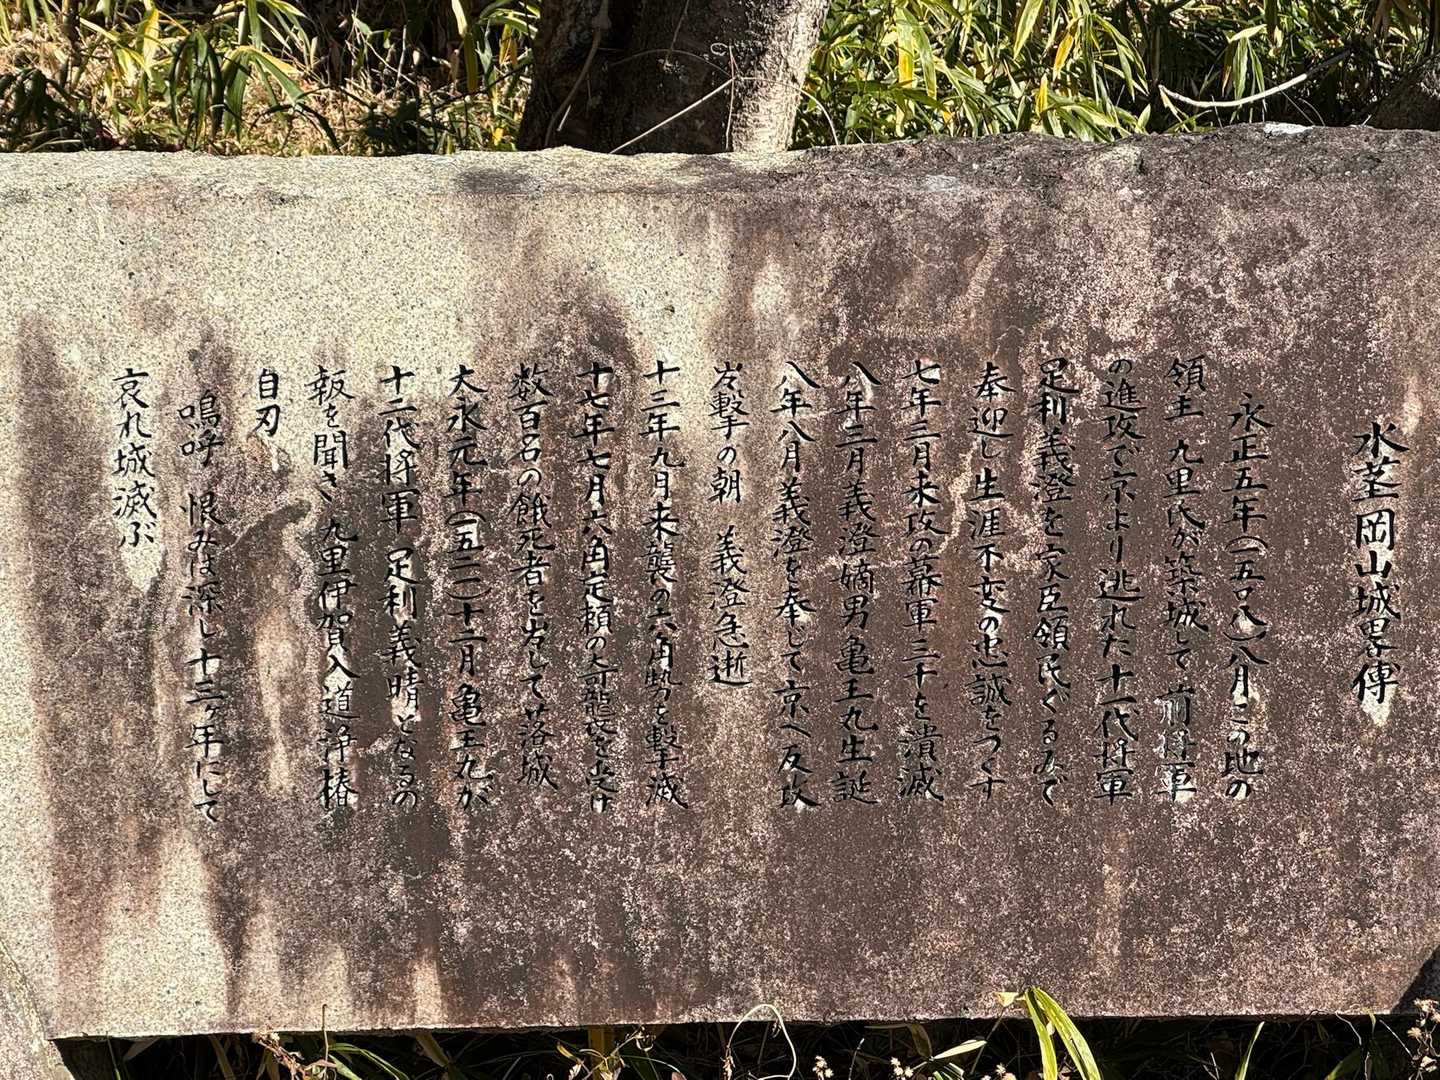 水茎岡山城畧傳
永正五年(一五〇八)八月この地の
領主 九里氏が築城して前将軍
の進攻で京より逃れた十一代将軍
足利義澄を家臣領民ぐるみで
奉迎し生涯不変の忠誠をつくす
七年二月来攻の幕軍三千を潰滅
八年三月義澄嫡男亀王丸生誕
八年八月義澄を奉じて京へ反攻
出撃の朝 義澄急逝
十三年九月来襲の六角勢を撃滅
十七年七月六角定頼の奇襲を受け
数百名の餓死者を出して落城
大永元年(一五二一)十二月亀王丸が
十二代将軍 足利義晴となるの
報を聞き 九里伊賀入道浄椿
自刃
嗚呼 恨みは深し十三ヶ年にして
哀れ城滅ぶ